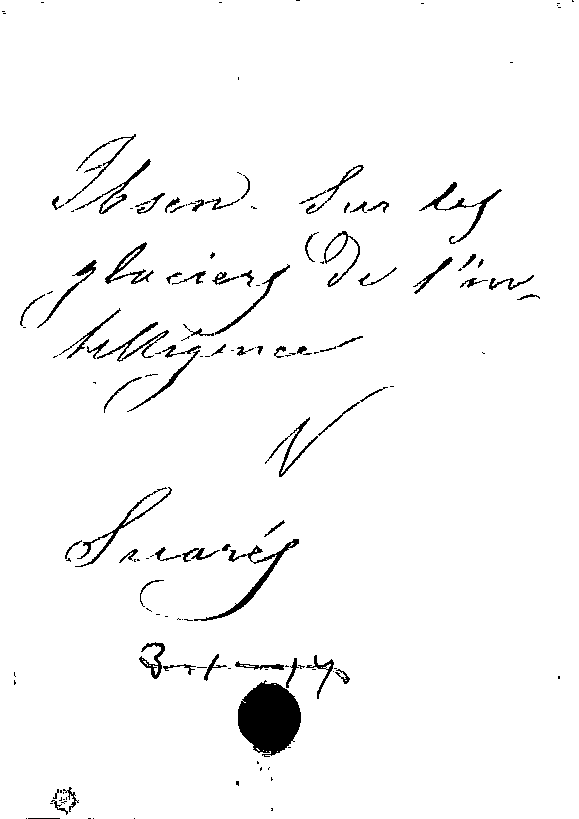 Ibsen. Sur les
glaciers de l'in-
telligence
V
Suarés